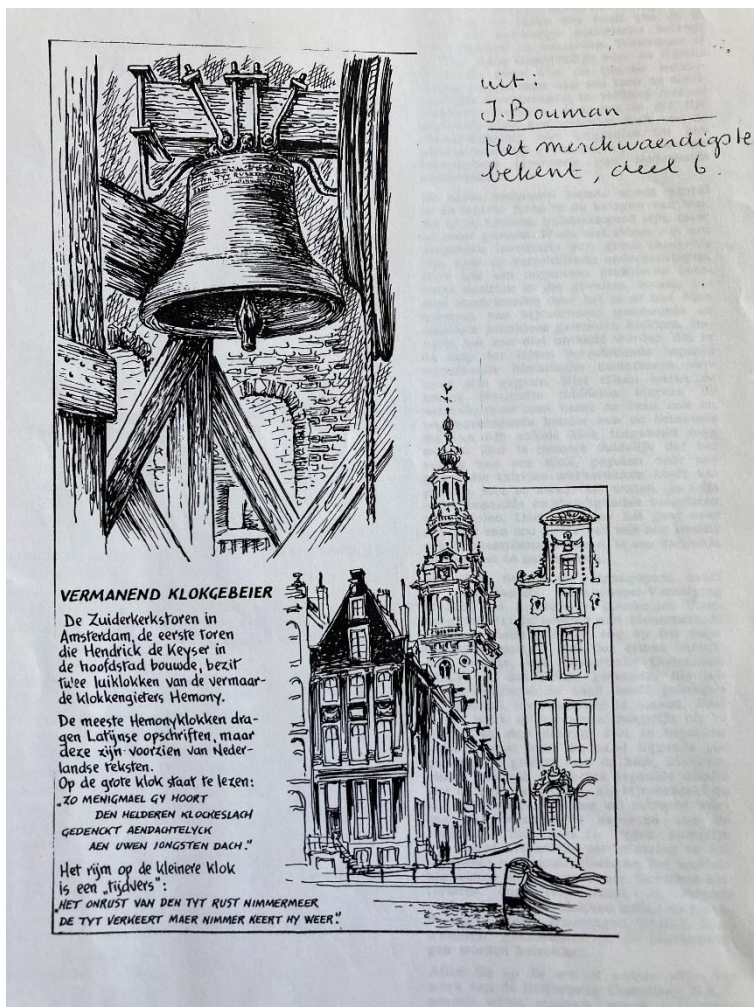 uit:
J. Bouman
Het merckwaerdigste
bekent, deel 6.
VERMANEND KLOKGEBEIER
De Zuiderkerkstoren in
Amsterdam, de eerste toren
die Hendrick de Keyser in
de hoofdstad bouwde, bezit
twee luiklokken van de vermaar-
de klokkengieters Hemony.
De meeste Hemonyklokken dra-
gen Latijnse opschriften, maar
deze zijn voorzien van Neder-
landse teksten.
Op de grote klok staat te lezen:
„ZO MENIGMAEL GY HOORT
DEN HELDEREN KLOCKESLACH
GEDENCKT AENDACHTELYCK
AEN UWEN JONGSTEN DACH."
Het rijm op de kleinere klok
is een „tijdvers":
„HET ONRUST VAN DEN TYT RUST NIMMERMEER
DE TYT VERKEERT MAER NIMMER KEERT HY WEER."